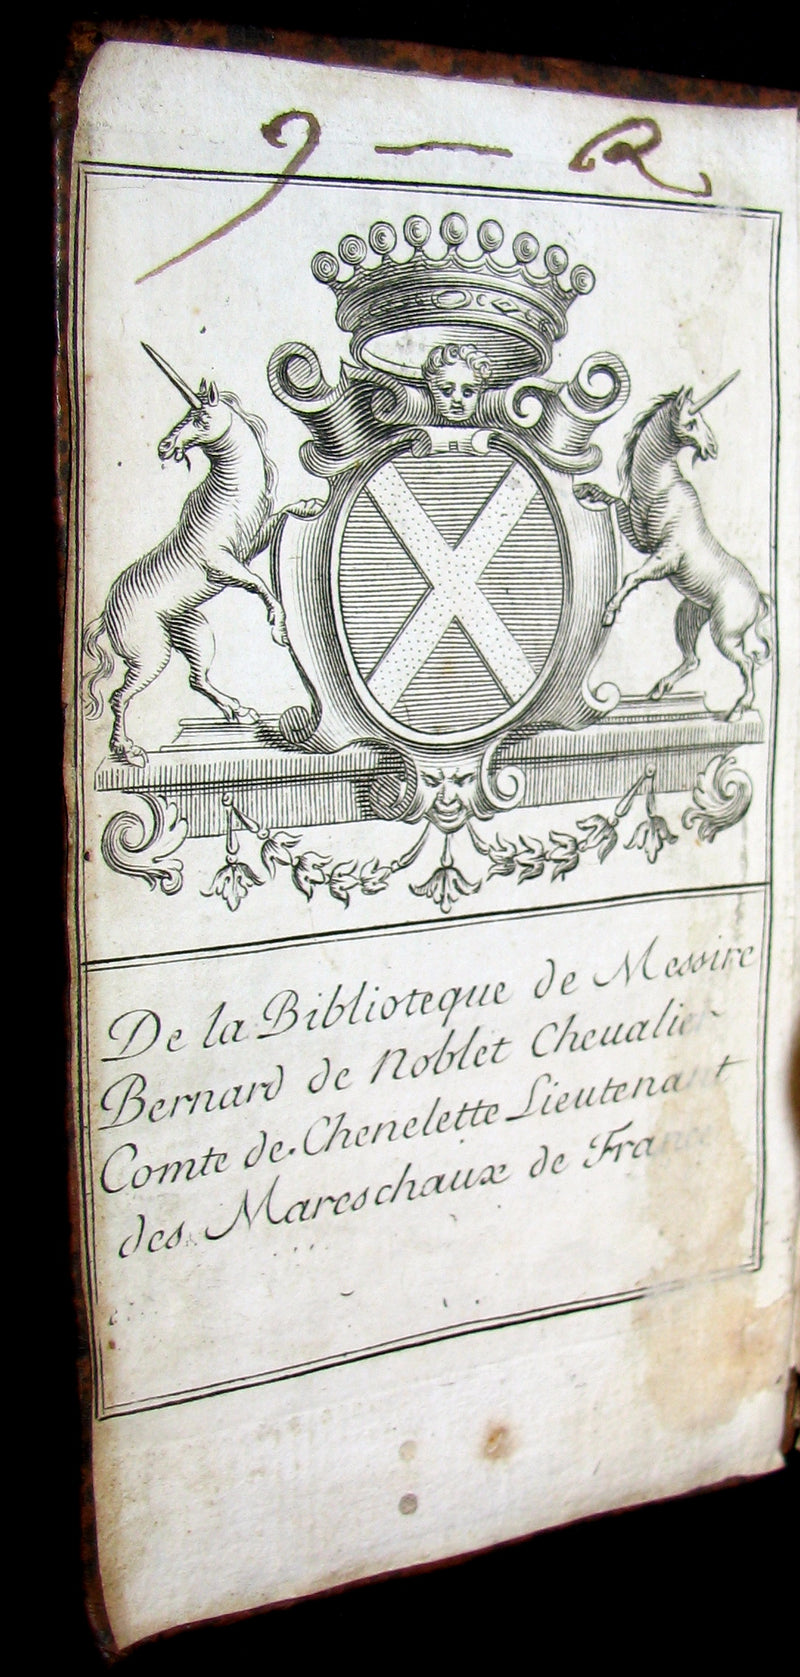 9 — R
De la Biblioteque de Messire
Bernard de Noblet Cheualier
Comte de Chenelette Lieutenant
des Mareschaux de France